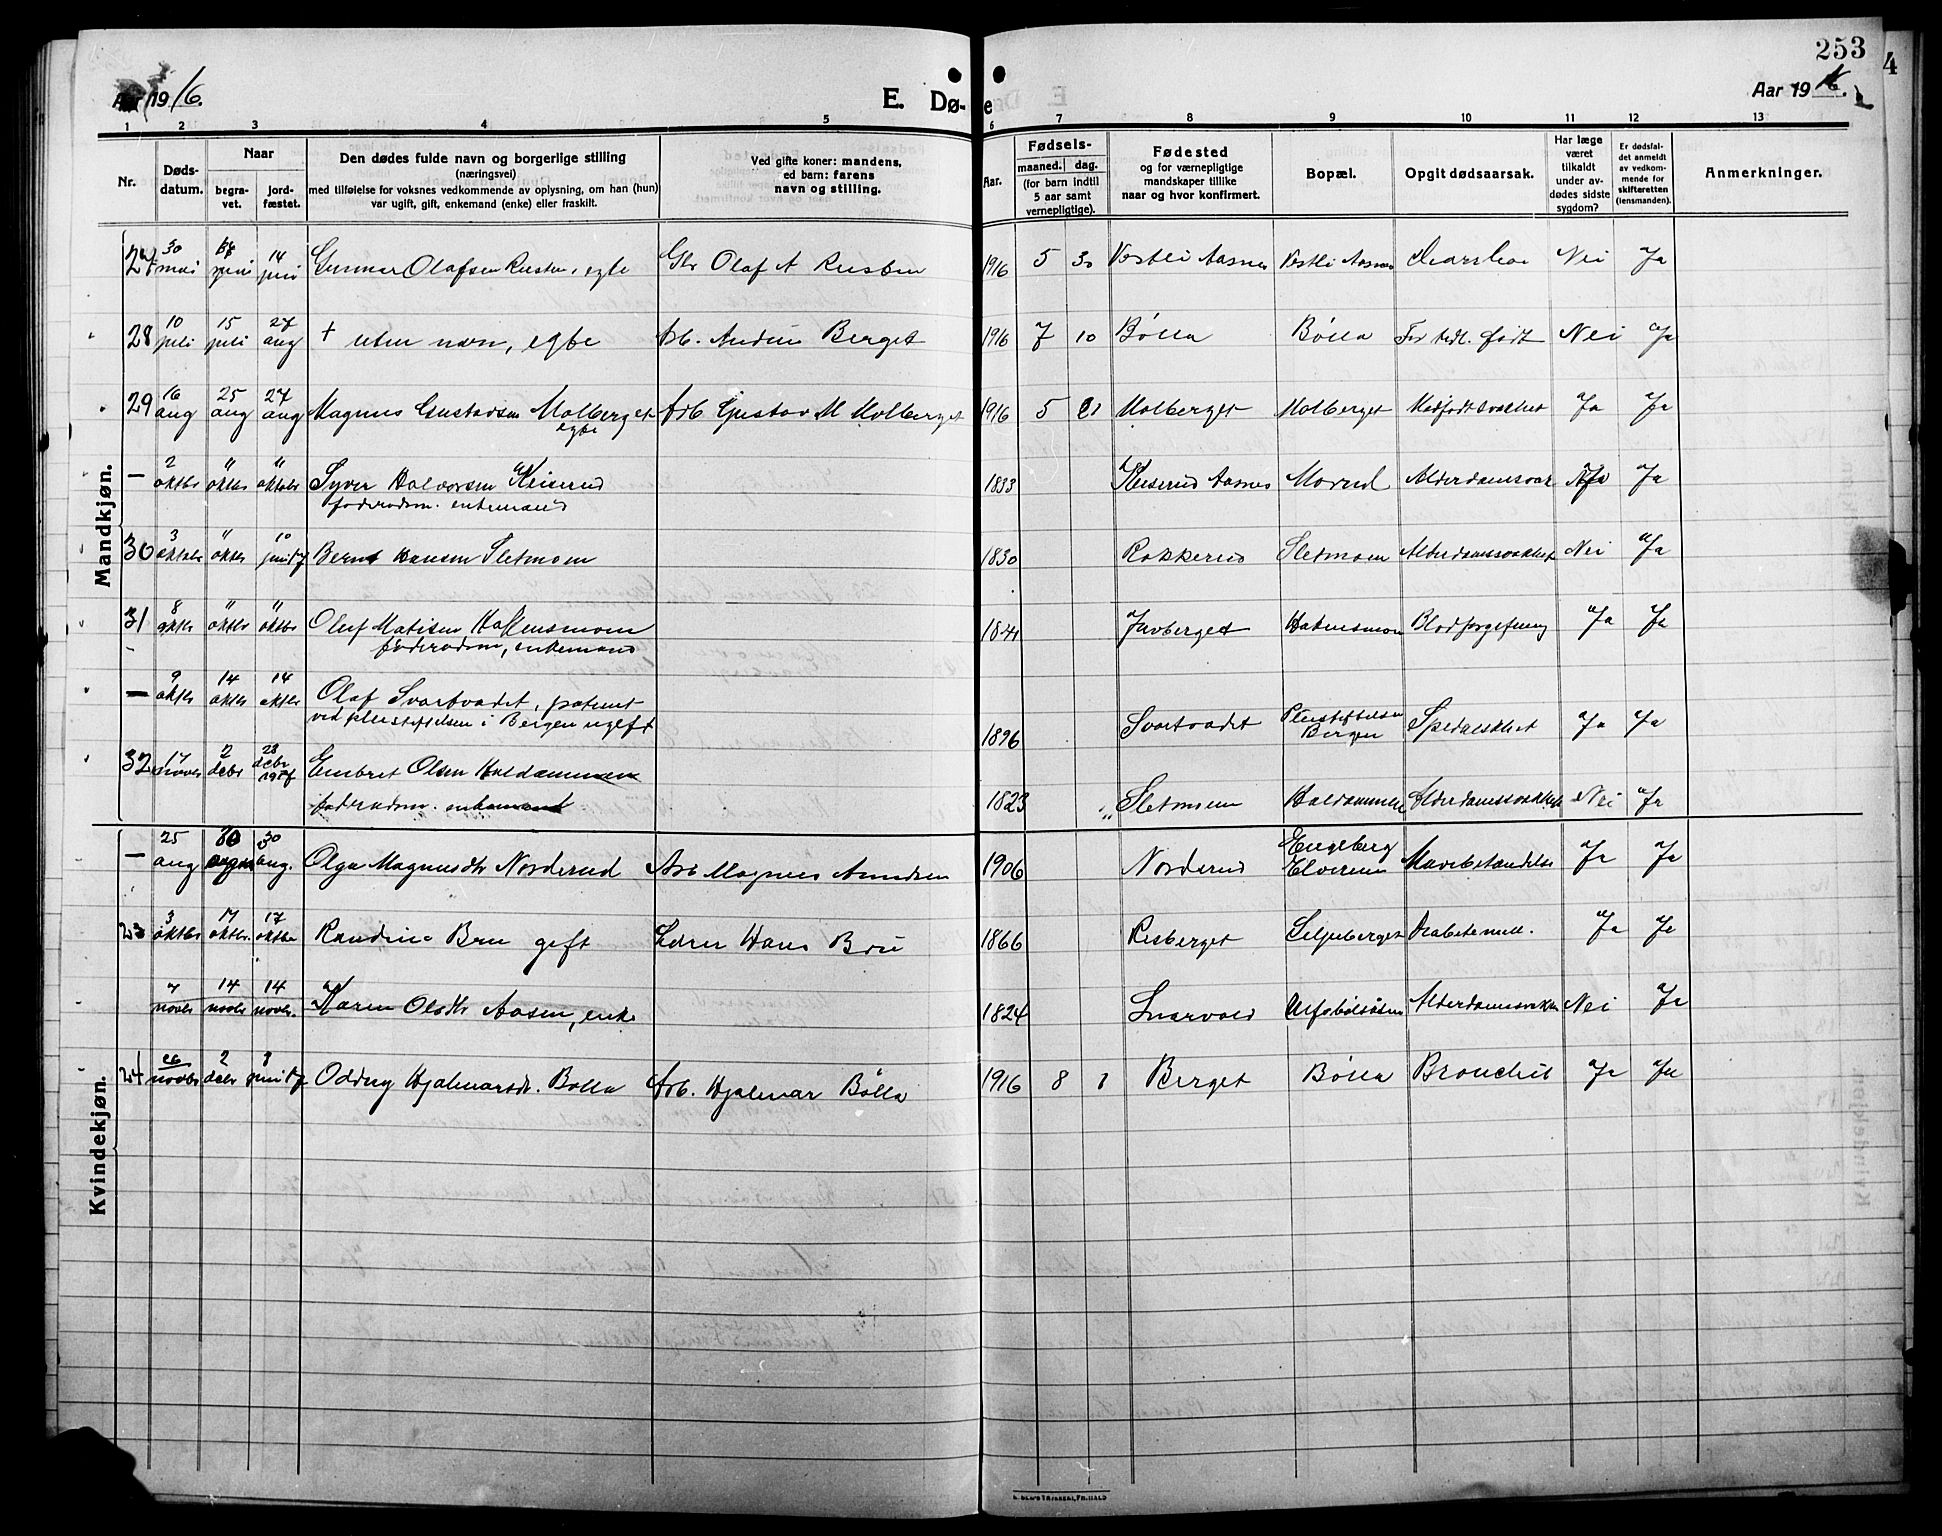 253
4
Aar 1916.
E. Dø-
e
Aar 1916.
1 2 3 4 5 6 7 8 9 10 11 12 13
Nr.
Døds-
datum.
Naar
begra-
vet.
jord-
fæstet.
Den dødes fulde navn og borgerlige stilling
(næringsvei)
med tilføielse for voksnes vedkommende av oplysning, om han (hun)
var ugift, gift, enkemand (enke) eller fraskilt.
Ved gifte koner: mandens,
ved barn: farens
navn og stilling.
Aar.
Fødsels-
maaned. dag.
(for barn indtil
5 aar samt
vernepligtige).
Fødested
og for værnepligtige
mandskaper tillike
naar og hvor konfirmert.
Bopæl.
Opgit dødsaarsak.
Har læge
været
tilkaldt
under av-
dødes sidste
sygdom?
Er dødsfal-
det anmeldt
av vedkom-
mende for
skifteretten
(lensmanden).
Anmerkninger.
Mandkjøn.
27 30 mai juni 14 juni Gunnar Olafsen Rusten, egte Olaf A Rusten 1916 5 30 Vestli Aasnes Vestli Aasnes Nei Ja
28 10 juli 15 juli 27 aug + uten navn, egte Arb. Berget 1916 7 10 Bölla Bölla For tidl. født Nei Ja
29 16 aug 25 aug 27 aug Magnus Gustavsen Molberget Arb. Gustav M Molberget 1916 5 Molberget Molberget Medfødt svakhet Ja Ja
egte
— 2 oktbr " oktbr " oktobr Syver Halvorsen Keiserud 1833 Keiserud Aasnes Alderdomssvak Ja
föderadsm. enkemand
30 3 oktobr " oktbr 10 juni 17 Bernt Hansen Sletmoen 1830 Rokkerud Sletmoen Alderdomssvakhet Nei Ja
31 8 oktbr " oktbr " oktbr Oluf Matisen Hakensmoen 1841 Juvberget Hakensmoen Blodforgiftning Ja Ja
föderadsm, enkemand
— 9 oktbr 14 oktbr 14 oktbr Olaf Svartvadet, patient
ved pleistiftelsen i Bergen ugift 1896 Svartvadet Pleistiftelsen Bergen Spedalskhet Ja Ja
32 17 novbr 2 debr 28 debr 1917 Embret Olsen Haldammen
föderadsm. enkemand 1823 Sletmoen Haldammen Alderdomssvakhet Nei Ja
Kvindekjøn.
— 25 aug 30 aug. Olga Magnusdtr Norderud Arb Magnus Amundsen 1906 Norderud Engeberg Elverum Mavebetændelse Ja Ja
23 3 oktbr 17 oktbr. 17 oktbr Randine Bru gift Hans Bru 1866 Risberget Seljeberget Diabetes mell. Ja Ja
7 novbr 14 novbr 14 novbr. Karen Olsdtr Aasen, enke 1824 Snarvold Alderdomssvakhet Nei Ja
24 26 novbr 2 debr 3 juni 17 Oddny Hjalmarsdt. Bölla Arb. Hjalmar Bölla 1916 8 1 Berget Bölla Bronchit Ja Ja